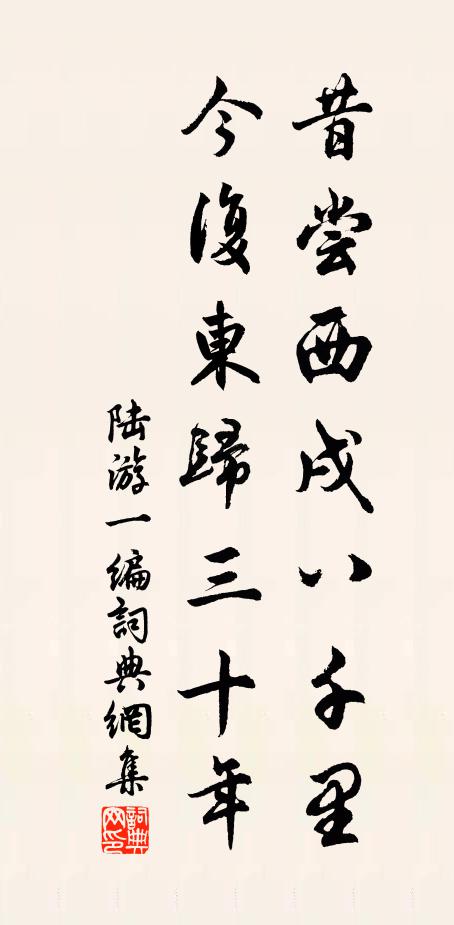 昔尝西戍八千里
今復東歸三十年
陆游一编詞典網集
詞典网印